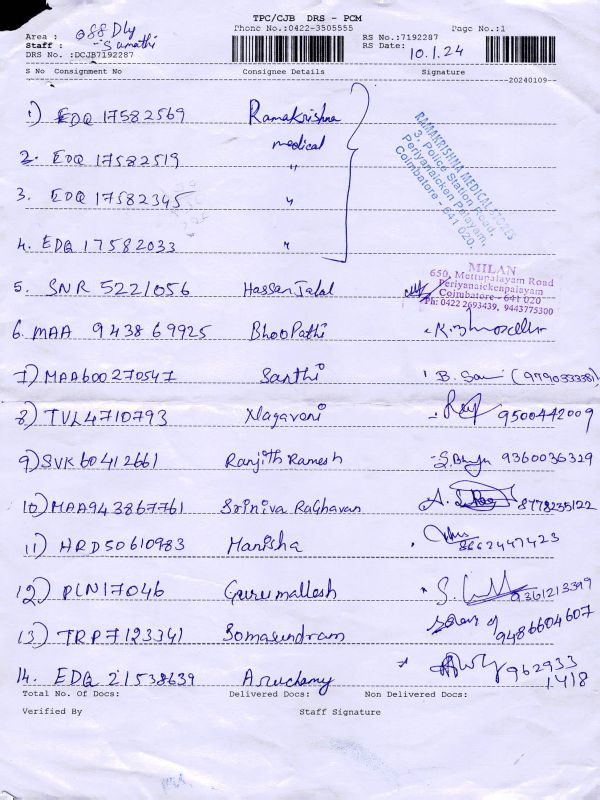 TPC/CJB DRS - PCM
Area : 088 Dly Phone No.:0422-3505555 Page No.:1
Staff : Sumathi RS No.:7192287
DRS No. :DCJB7192287 RS Date: 10.1.24
S No Consignment No Consignee Details Signature
20240109
1) EDQ 17582569 Ramakrishna
medical
2. EDQ 17582519 "
3. EDQ 17582345 "
4. EDQ 17582033 "
RAMAKRISHNA MEDICAL STORES
3, Police Station Road,
Periyanaicken Palayam,
Coimbatore - 641 020.
5. SNR 5221056 Hassan Jalal
MILAN
650, Mettupalayam Road
Periyanaickenpalayam
Coimbatore - 641 020
Ph: 0422 2693439, 9443775300
6. MAA 943869925 Bhoopathi
7) MAA600270547 Santhi B. (9790333381)
8) TVL4710793 Nagavani 9500442009
9) SVK60412661 Ranjith Ramesh 9360036329
10) MAA943867761 Sriniva Raghavan 8778235122
11) HRD50610983 Manisha 8667447423
12) PLN17046 Guru mallesh 9361213399
13) TRP7123341 Somasundram 9486604607
14. EDQ 21538639 Aruchamy 962933
1418
Total No. Of Docs: Delivered Docs: Non Delivered Docs:
Verified By Staff Signature